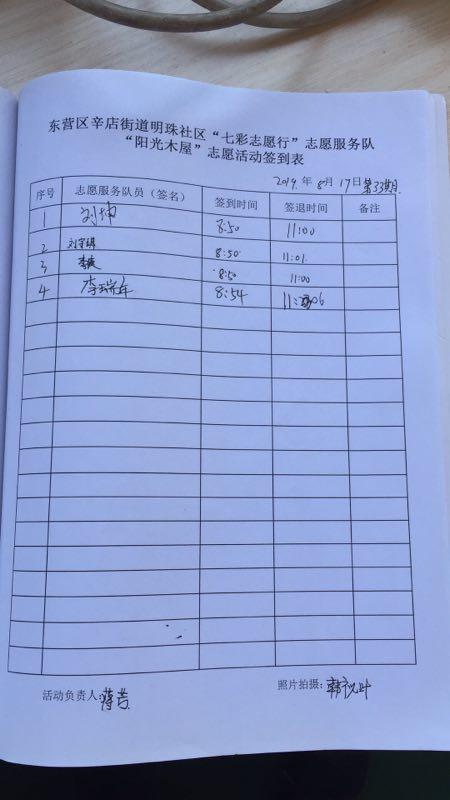 东营区辛店街道明珠社区“七彩志愿行”志愿服务队
“阳光木屋”志愿活动签到表
2019.年 8月 17日第33期.
序号 志愿服务队员（签名） 签到时间 签退时间 备注
1 刘坤 8:50 11:00
2 刘宇琪 8:50 11:01.
3 8:50 11:00
4 李瑞年 8:54 11:06
活动负责人: 蒋芸 照片拍摄: